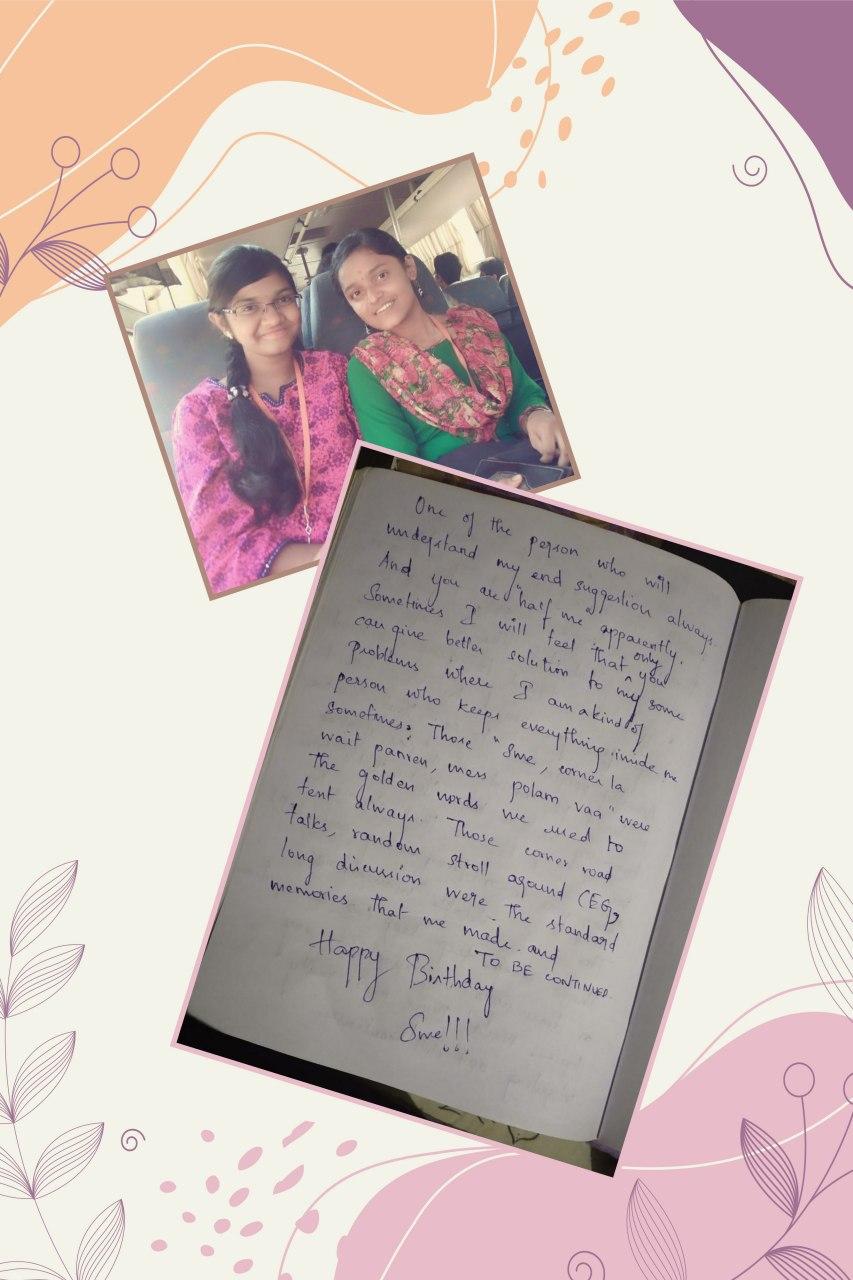 One of the person who will
understand my end suggestion always.
And you are "half me apparently.
Sometimes I will feel that only you
can give better solution to my some
problems where I am a kind of
person who keeps everything inside me
sometimes. Those "Swe, corner la
wait panren, mess polam vaa" were
the golden words we used to
text always. Those corner road
talks, random stroll around CEG,
long discussion were the standard
memories that we made and
TO BE CONTINUED.
Happy Birthday
Swe!!!